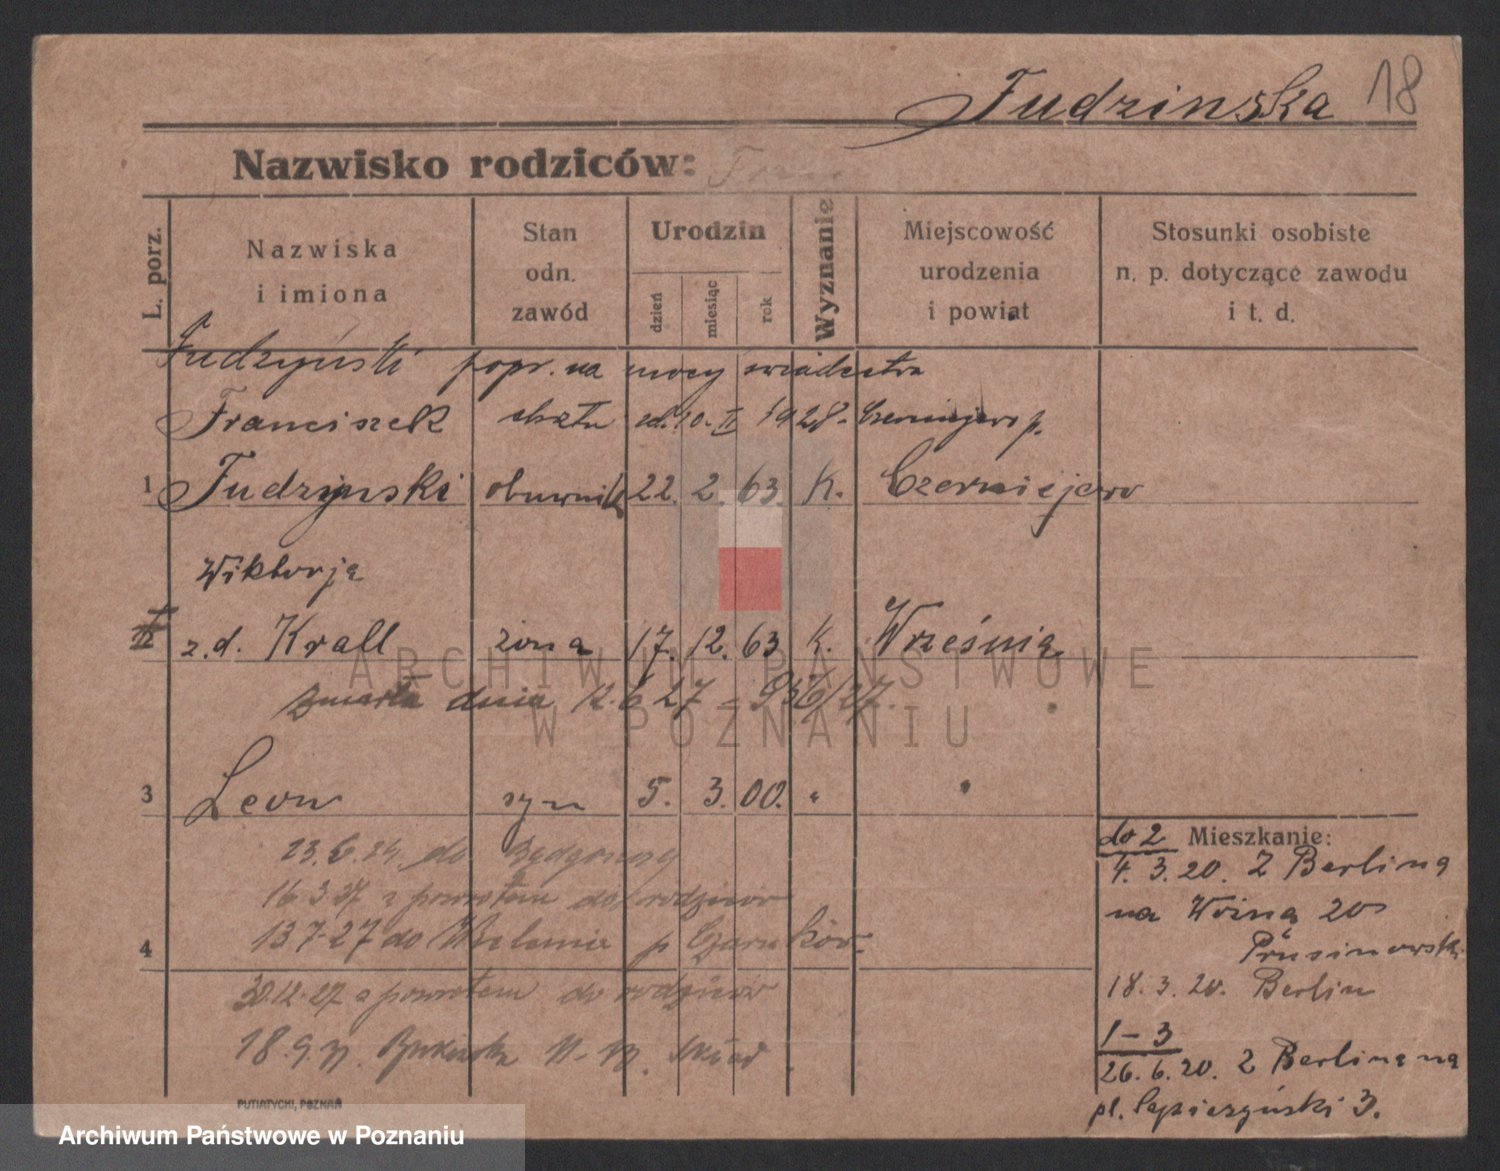 Fudzinska 18
Nazwisko rodziców:
L. porz.
Nazwiska
i imiona
Stan
odn.
zawód
Urodzin
dzień
miesiąc
rok
Wyznanie
Miejscowość
urodzenia
i powiat
Stosunki osobiste
n. p. dotyczące zawodu
i t. d.
Fudzyński popr. na mocy swiadectwa
Franciszek chztu 10. II 1928. Czerniejewo p.
1 Fudzynski obuwnik 22. 2. 63. K. Czerniejewo
Wiktorja
z.d. Krall żona 17. 12. 63 K. Wrześnią
zmarła dnia 12. 6 27 - 956/27.
3 Leon syn 5. 3. 00. "
23.6.24. do Bydgoszcz
16 3 37 z powrotem do rodziców
4 13 7-27 do Wielenia p Czarnków
30.12.27 z powrotem do rodziców
18.9.31
do 2 Mieszkanie:
4. 3. 20. Z Berlina
na 20
Prusinowski
18. 3. 20. Berlin
1-3
26. 6. 20. Z Berlina na
pl. Sapieżyński 3.
PUTIATYCKI, POZNAŃ
ARCHIWUM PAŃSTWOWE
W POZNANIU
Archiwum Państwowe w Poznaniu